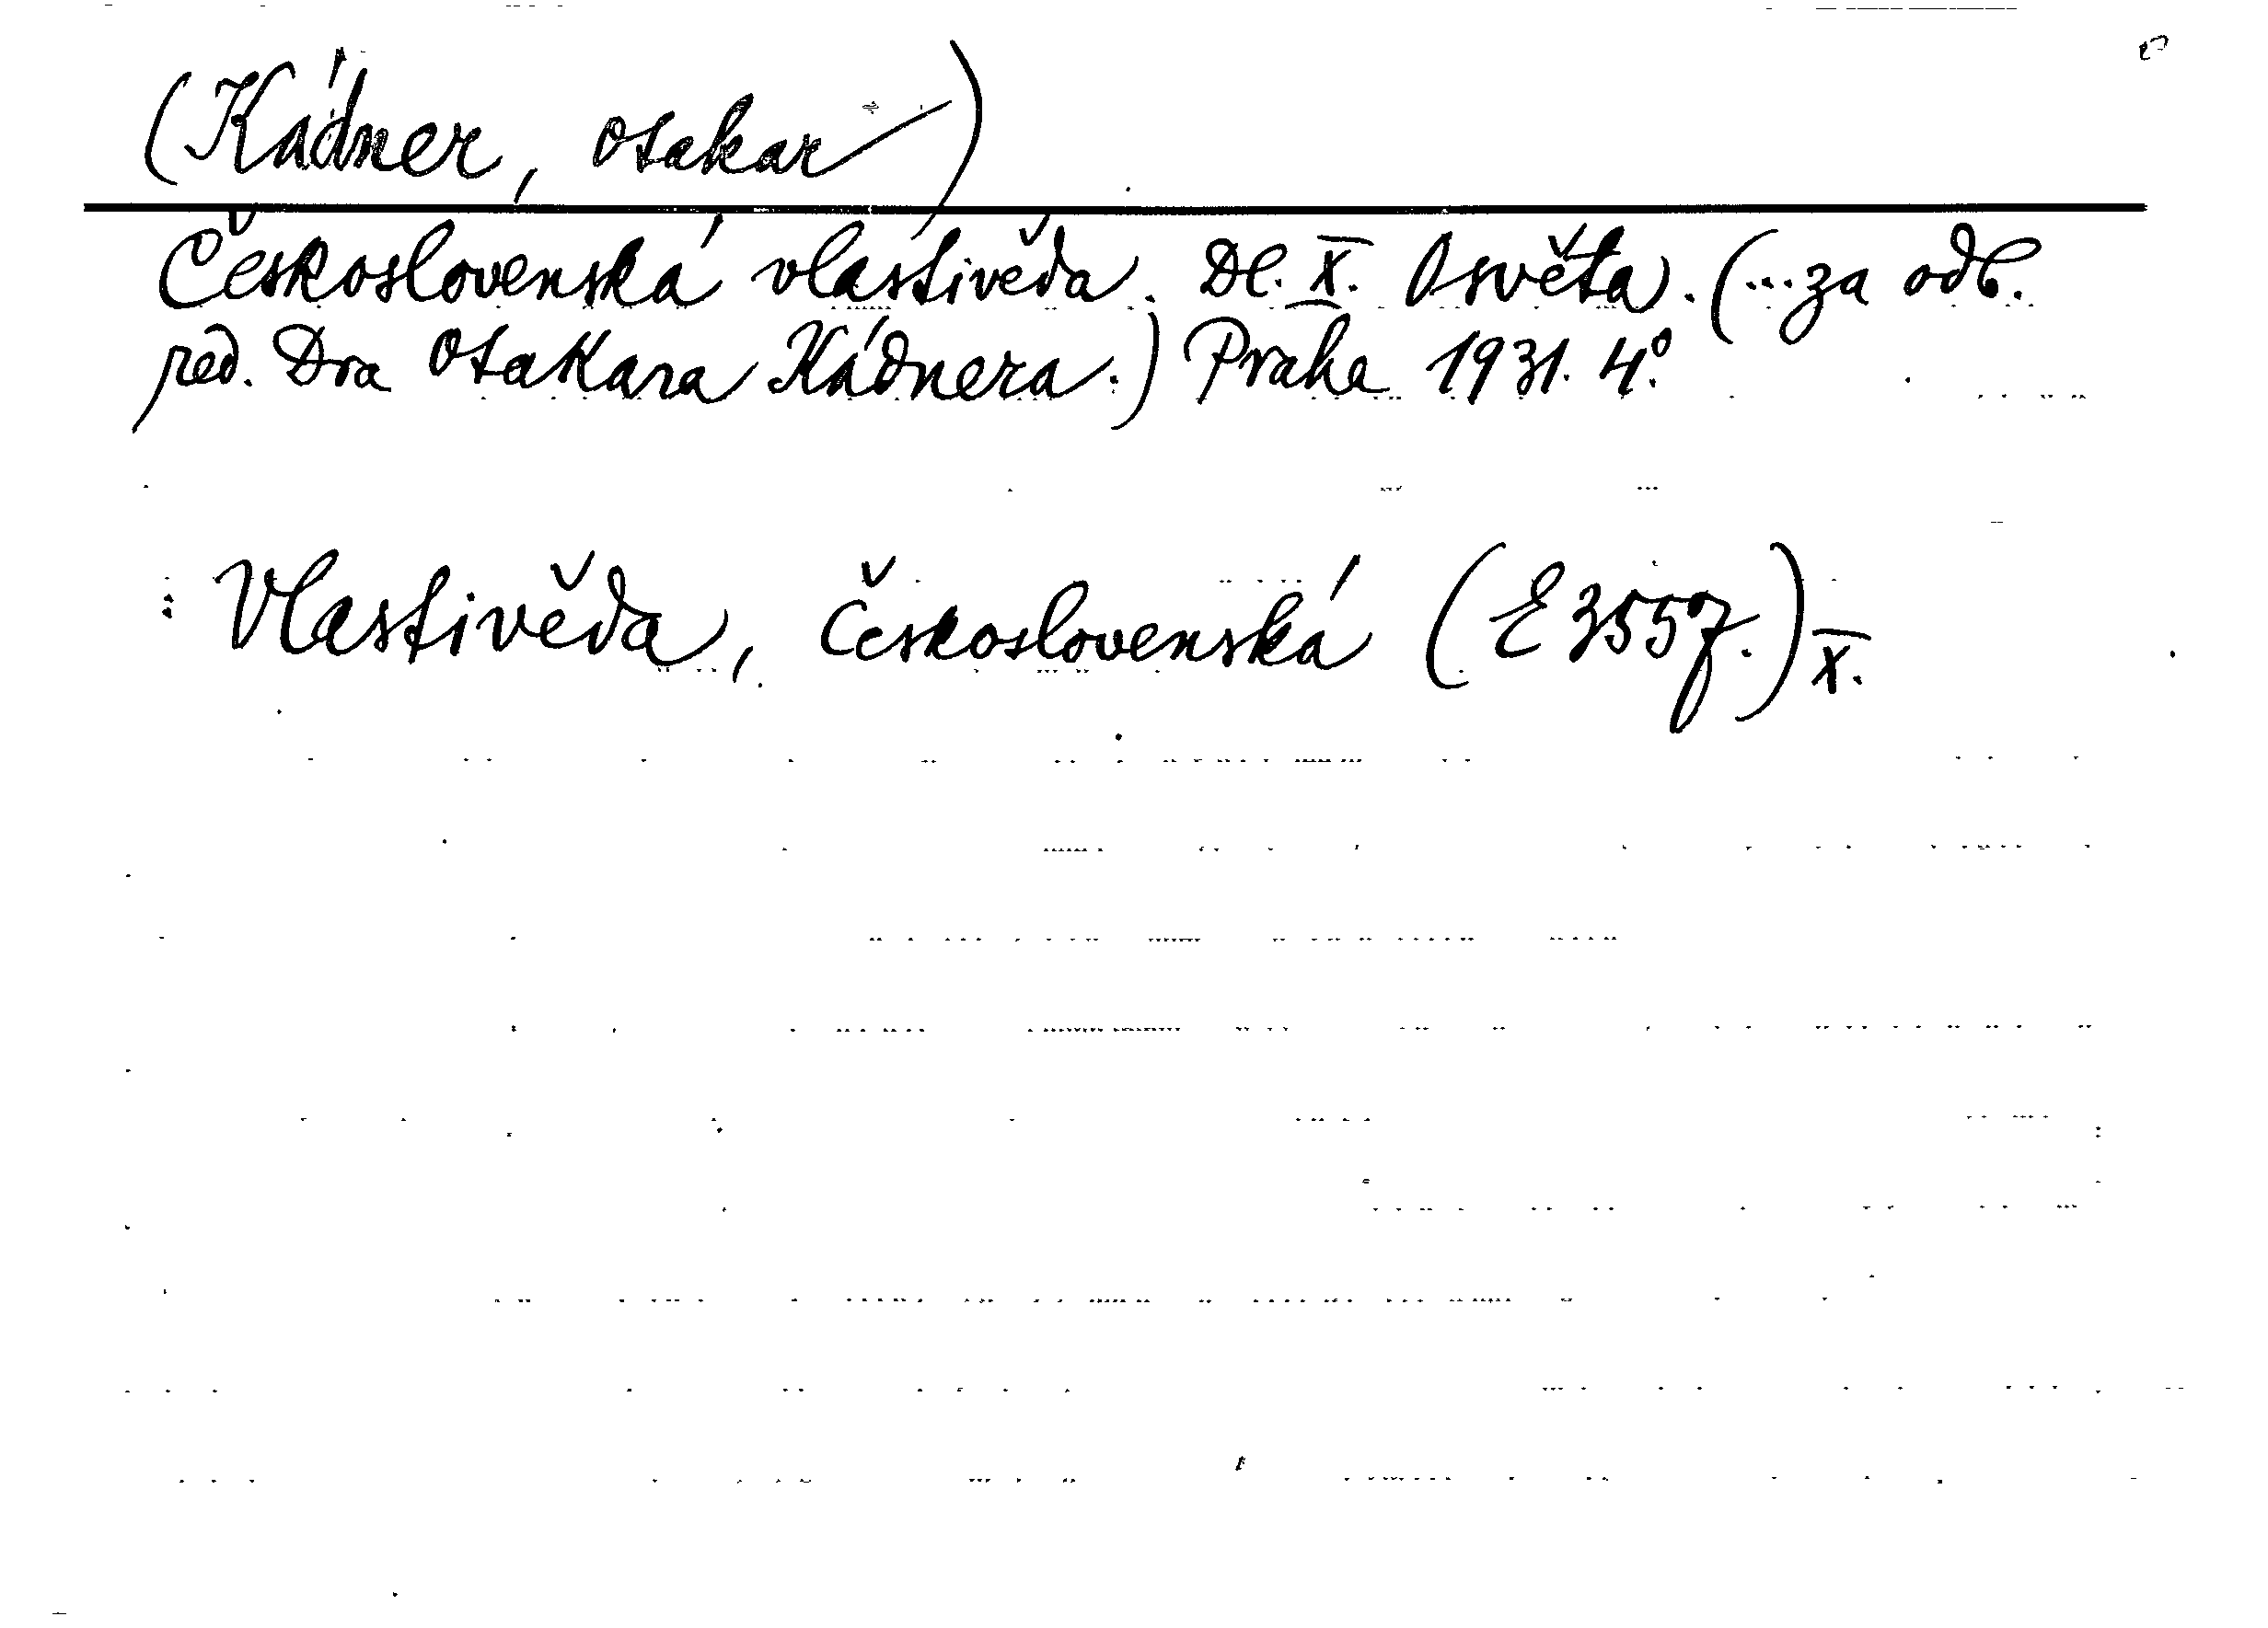 (Kádner, Otakar)
Československá vlastivěda. Dl. X. Osvěta. (...za odb.
red. Dra Otakara Kádnera.) Praha 1931. 4.°
: Vlastivěda, Československá (E 3557.) X.